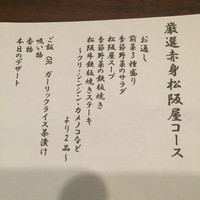 厳選赤身松阪屋コース
お通し
前菜3種盛り
季節野菜のサラダ
松阪屋スープ
季節野菜の鉄板焼き
松阪牛鉄板焼きステーキ
～クリ・シンシン・カメノコなど
より2品～
ご飯 OR ガーリックライス茶漬け
吸い物
香物
本日のデザート